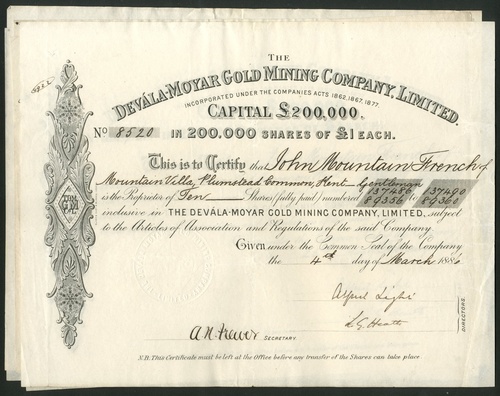 THE
DEVÁLA-MOYAR GOLD MINING COMPANY, LIMITED.
INCORPORATED UNDER THE COMPANIES ACTS 1862, 1867, 1877.
CAPITAL £200,000,
No 8520 IN 200,000 SHARES OF £1 EACH.
This is to Certify that John Mountain French of
Mountain Villa, Plumstead Common, Kent Gentleman
137486 137490
is the Proprietor of Ten Shares (fully paid) numbered 89356 to 89360
inclusive in THE DEVÁLA-MOYAR GOLD MINING COMPANY, LIMITED, subject
to the Articles of Association and Regulations of the said Company.
Given under the Common Seal of the Company
the 4th day of March
SECRETARY.
DIRECTORS.
N.B. This Certificate must be left at the Office before any transfer of the Shares can take place.